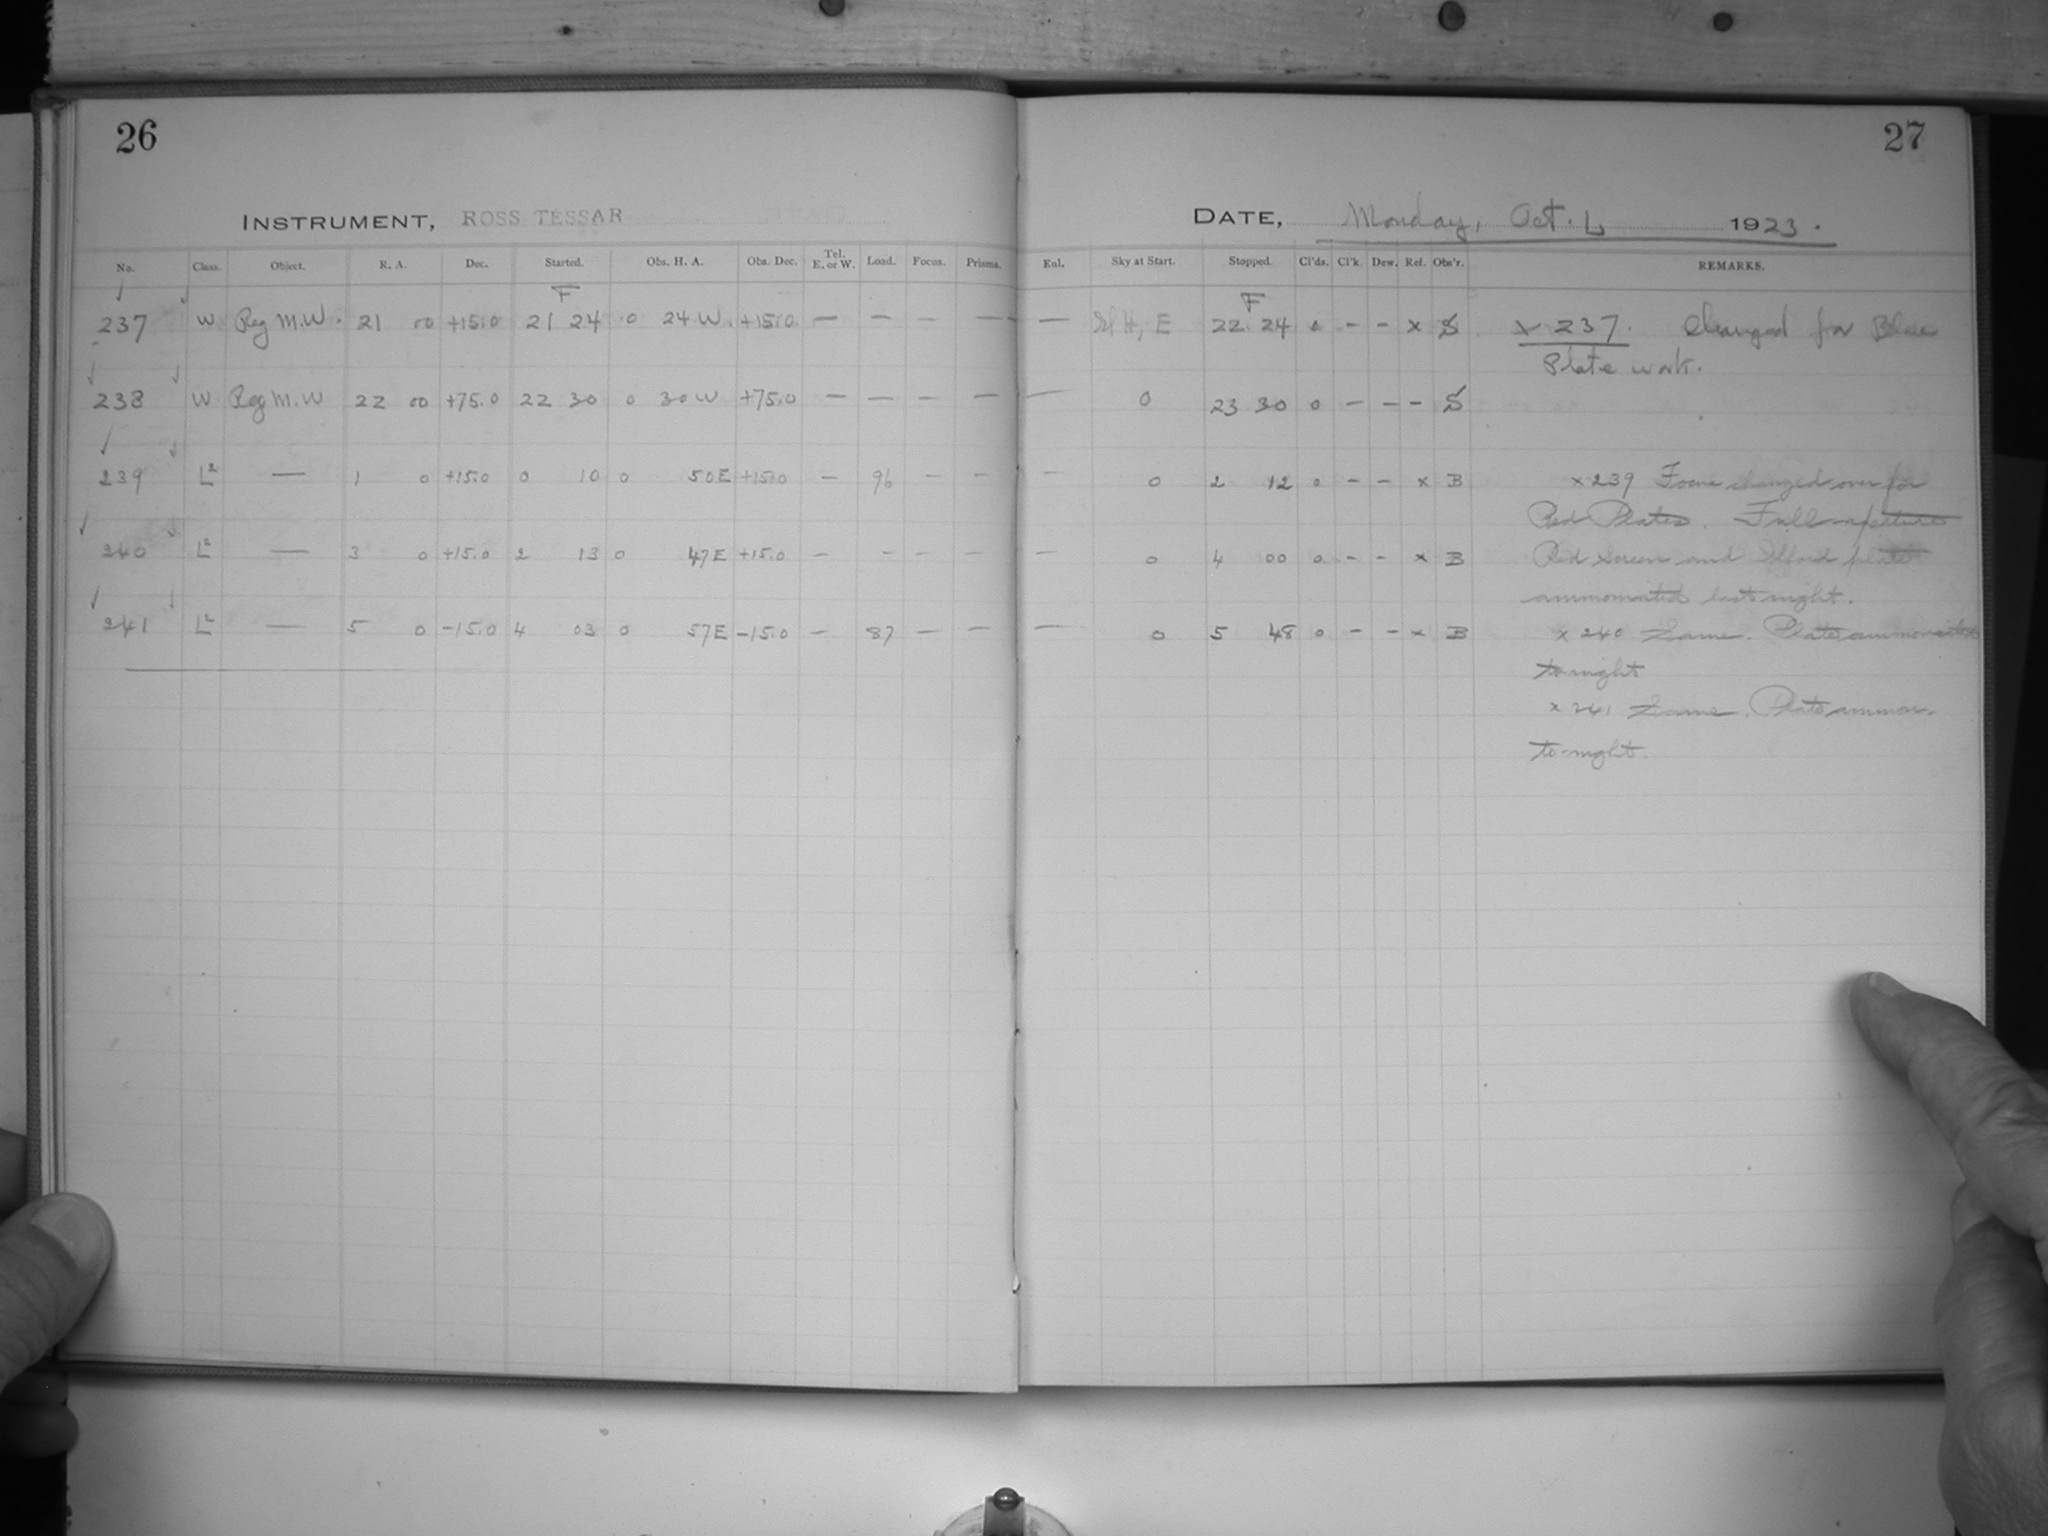 26
27
INSTRUMENT, ROSS TESSAR
DATE, Monday, Oct. 1923.
No. Class. Object. R. A. Dec. Started. Obs. H. A. Obs. Dec. Tel. E. or W. Load. Focus. Prisms. Eul. Sky at Start. Stopped. Cl'ds. Cl'k. Dew. Ref. Obs'r. REMARKS.
F F
237 W Reg M.W. 21 00 +15.0 21 24 0 24 W. +15.0 — — — — — H, E 22 24 0 - - x S x 237. Changed for Blue
Plate work.
238 W Reg M.W 22 00 +75.0 22 30 0 30 W +75.0 — — — — — 0 23 30 0 - - - S
239 L² — 1 0 +15.0 0 10 0 50 E +15.0 — 96 — — — 0 2 12 0 - - x B x 239 Focus changed over for
Red Plates. Full aperture
240 L² — 3 0 +15.0 2 13 0 47 E +15.0 — - — — — 0 4 00 0 - - x B Red Screen and Ilford plate
ammoniated last night.
241 L² — 5 0 -15.0 4 03 0 57 E -15.0 — 87 — — — 0 5 48 0 - - x B x 240 Same. Plate ammoniated
to-night
x 241 Same. Plate ammon.
to-night.